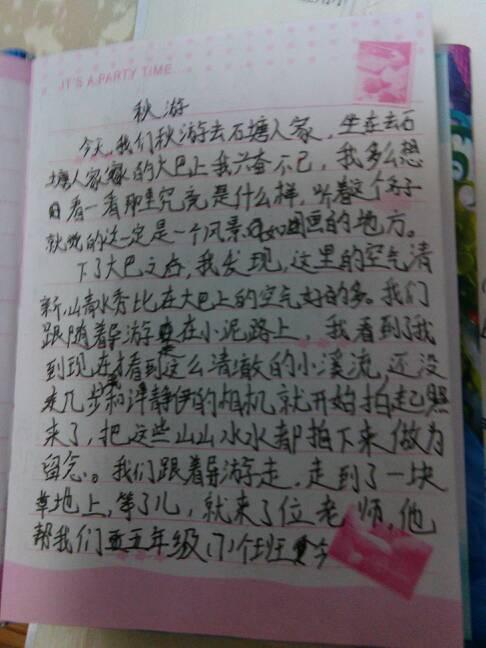 IT'S A PARTY TIME...
秋游
今天,我们秋游去石塘人家,坐在去石
塘人家的大巴上我兴奋不已,我多么想
看一看那里究竟是什么样,听着这个名子
就觉的这一定是一个风景如画的地方。
下了大巴之后,我发现,这里的空气清
新,山青水秀比在大巴上的空气好的多。我们
跟随着导游走在小泥路上,我看到了我
到现在才看到这么清澈的小溪流,还没
走几步我和许静伊的相机就开始拍起照
来了,把这些山山水水都拍下来做为
留念。我们跟着导游走,走到了一块
草地上,等了儿,就来了位老师,他
帮我们五年级(7)个班